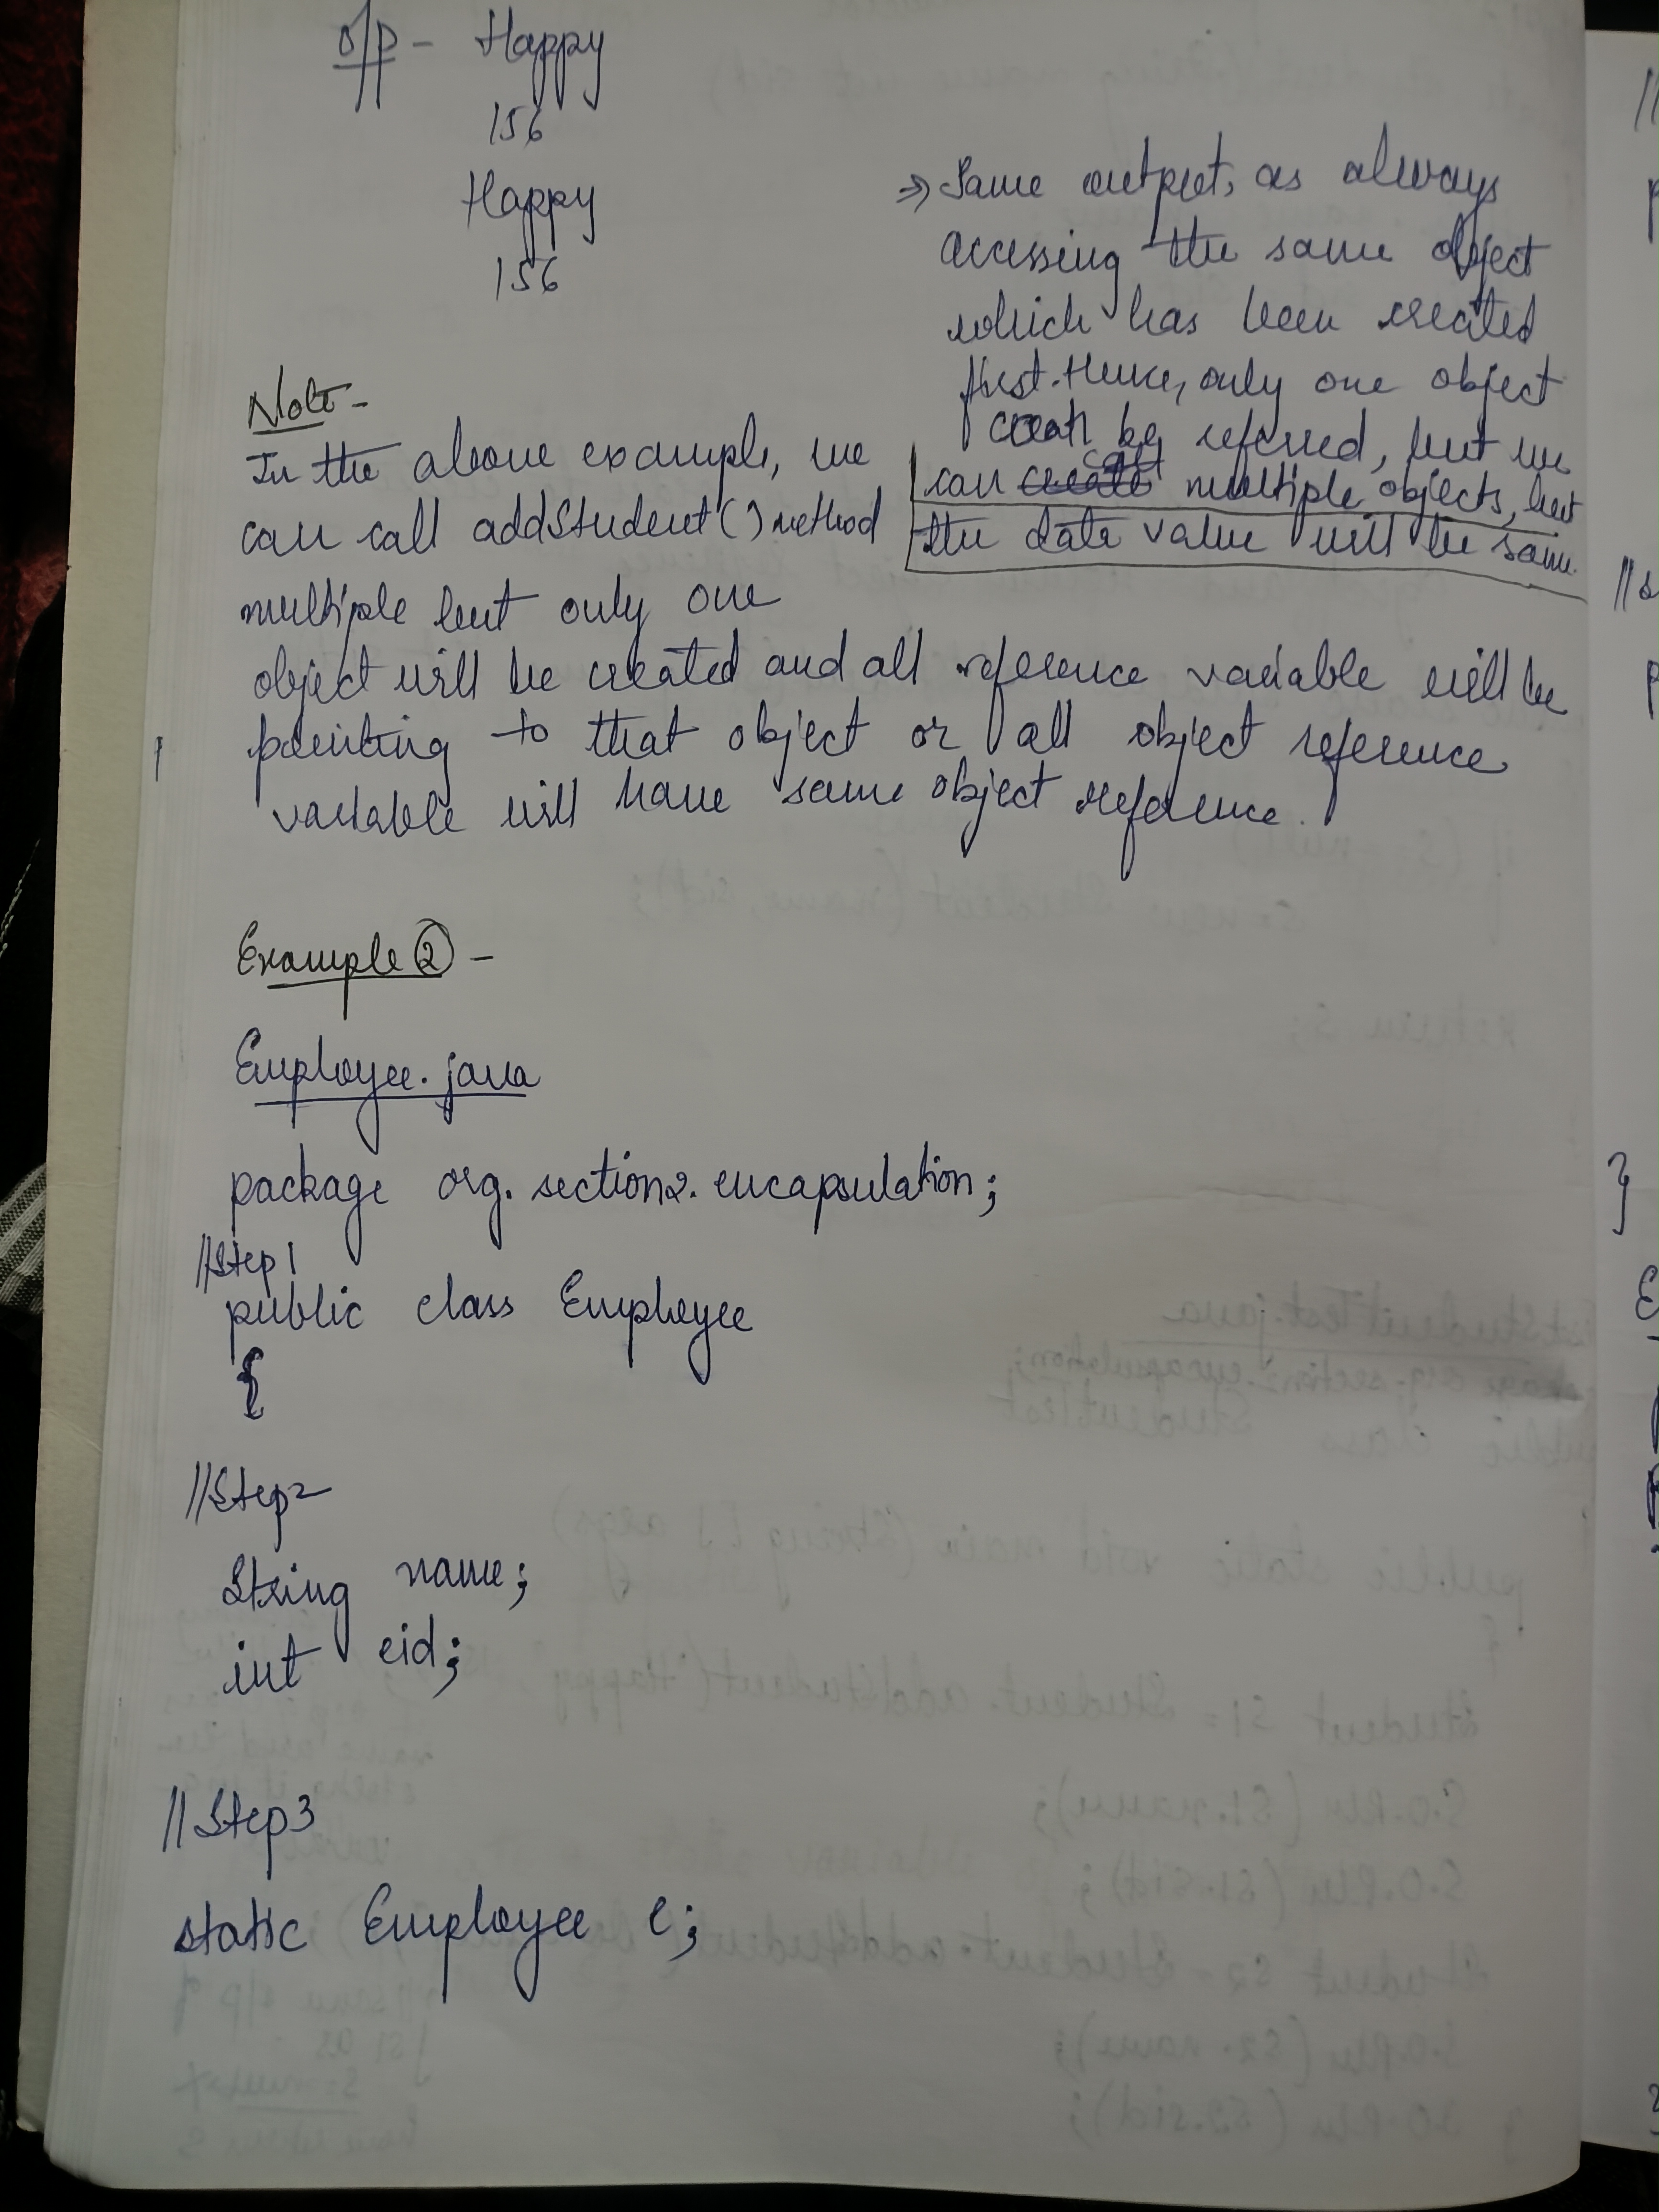 O/P - Happy
156
Happy
156
⇒ Same output, as always
accessing the same object
which has been created
first. Hence, only one object
can be referred, but we
can call multiple objects, but
the data value will be same.
Note -
In the above example, we
can call addStudent() method
multiple but only one
object will be created and all reference variable will be
pointing to that object or all object reference
variable will have same object reference.
Example ② -
Employee.java
package org.section2.encapsulation;
//Step 1
public class Employee
{
//Step2
String name;
int eid;
//Step3
static Employee e;